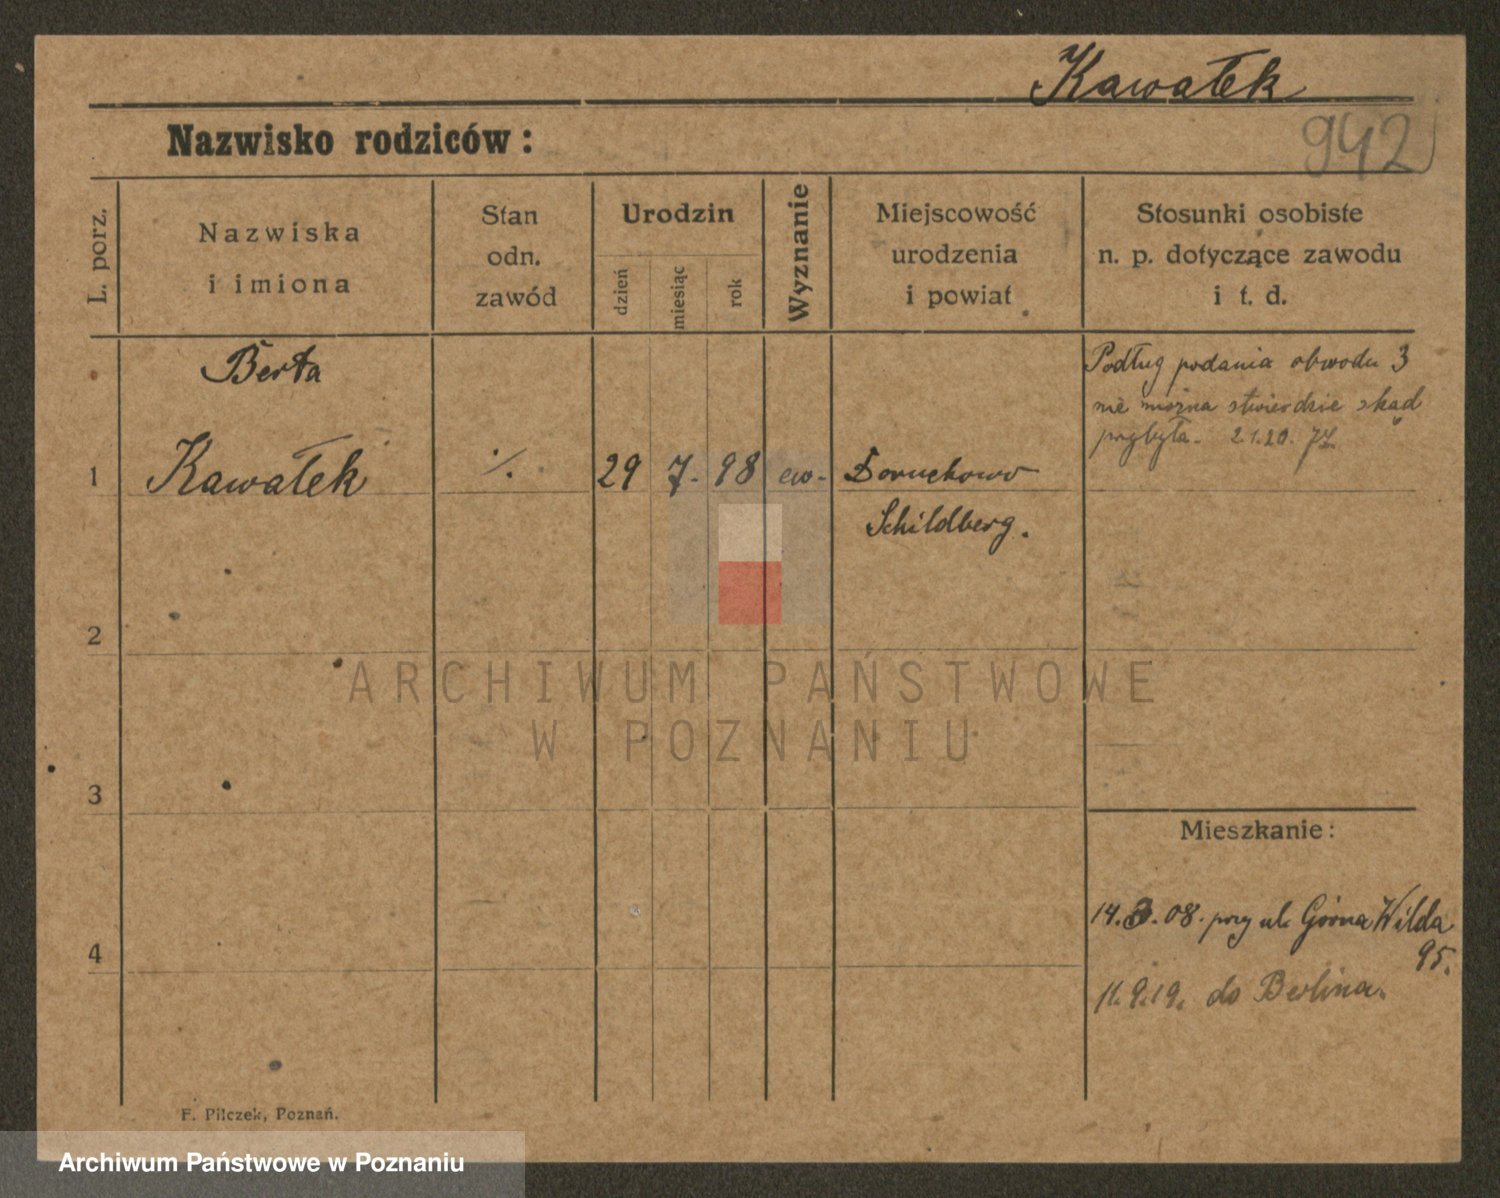 Kawałek
942
Nazwisko rodziców:
L. porz.
Nazwiska
i imiona
Stan
odn.
zawód
Urodzin
dzień
miesiąc
rok
Wyznanie
Miejscowość
urodzenia
i powiat
Stosunki osobiste
n. p. dotyczące zawodu
i t. d.
Berta
Podług podania obwodu 3
nie można stwierdzić skąd
przybyła. 2.1.20.
1 Kawałek ·/. 29 7. 98 ew. Doruchowo
Schildberg.
2
3
Mieszkanie:
14.3.08. przy ul. Górna Wilda
95.
4
11.9.19. do Berlina.
F. Pilczek, Poznań.
ARCHIWUM PAŃSTWOWE
W POZNANIU
Archiwum Państwowe w Poznaniu